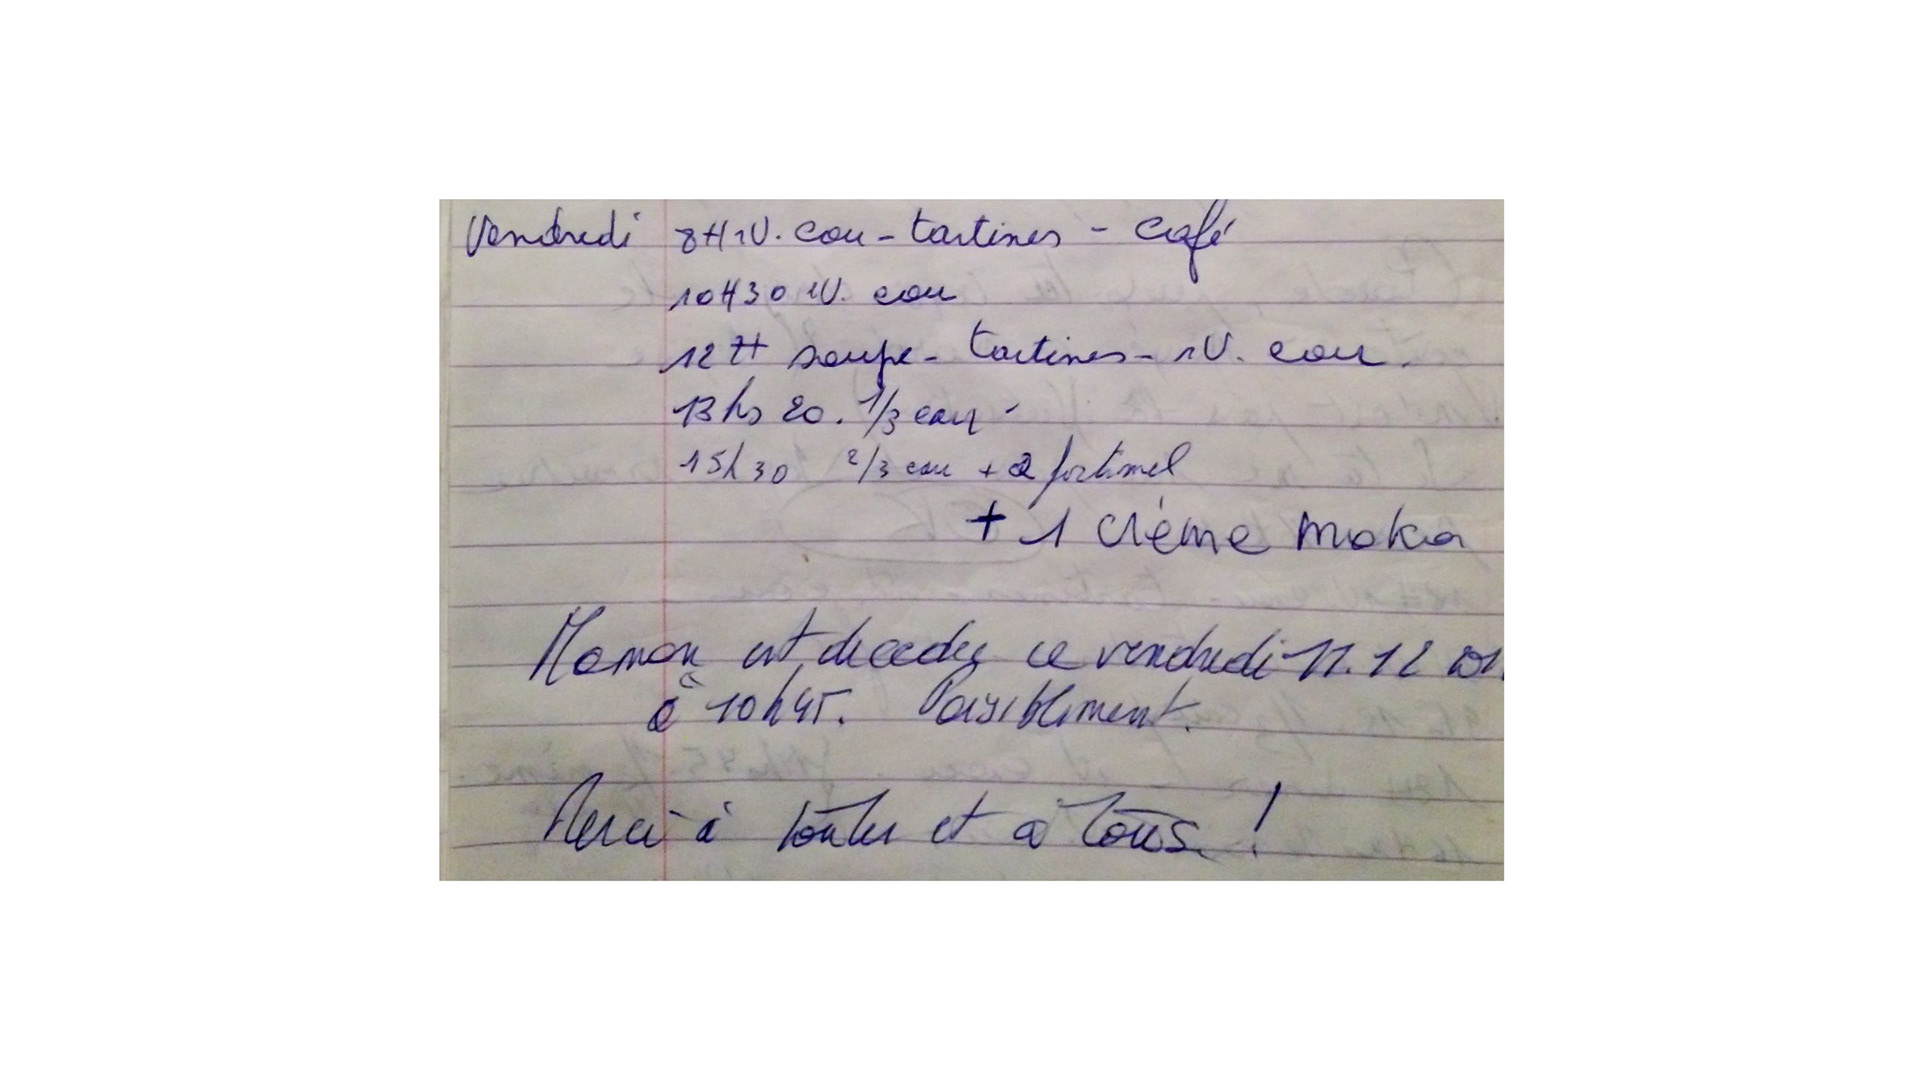 Vendredi 8H 1V. eau - tartines - café
10H30 1V. eau
12H soupe - tartines - 1V. eau
13hs 20. 1/3 eau -
15h30 2/3 eau + 2 fortimel
+ 1 crème moka
Maman est décédée ce vendredi 11.12 201
à 10h45. Paisiblement.
Merci à toutes et à tous !